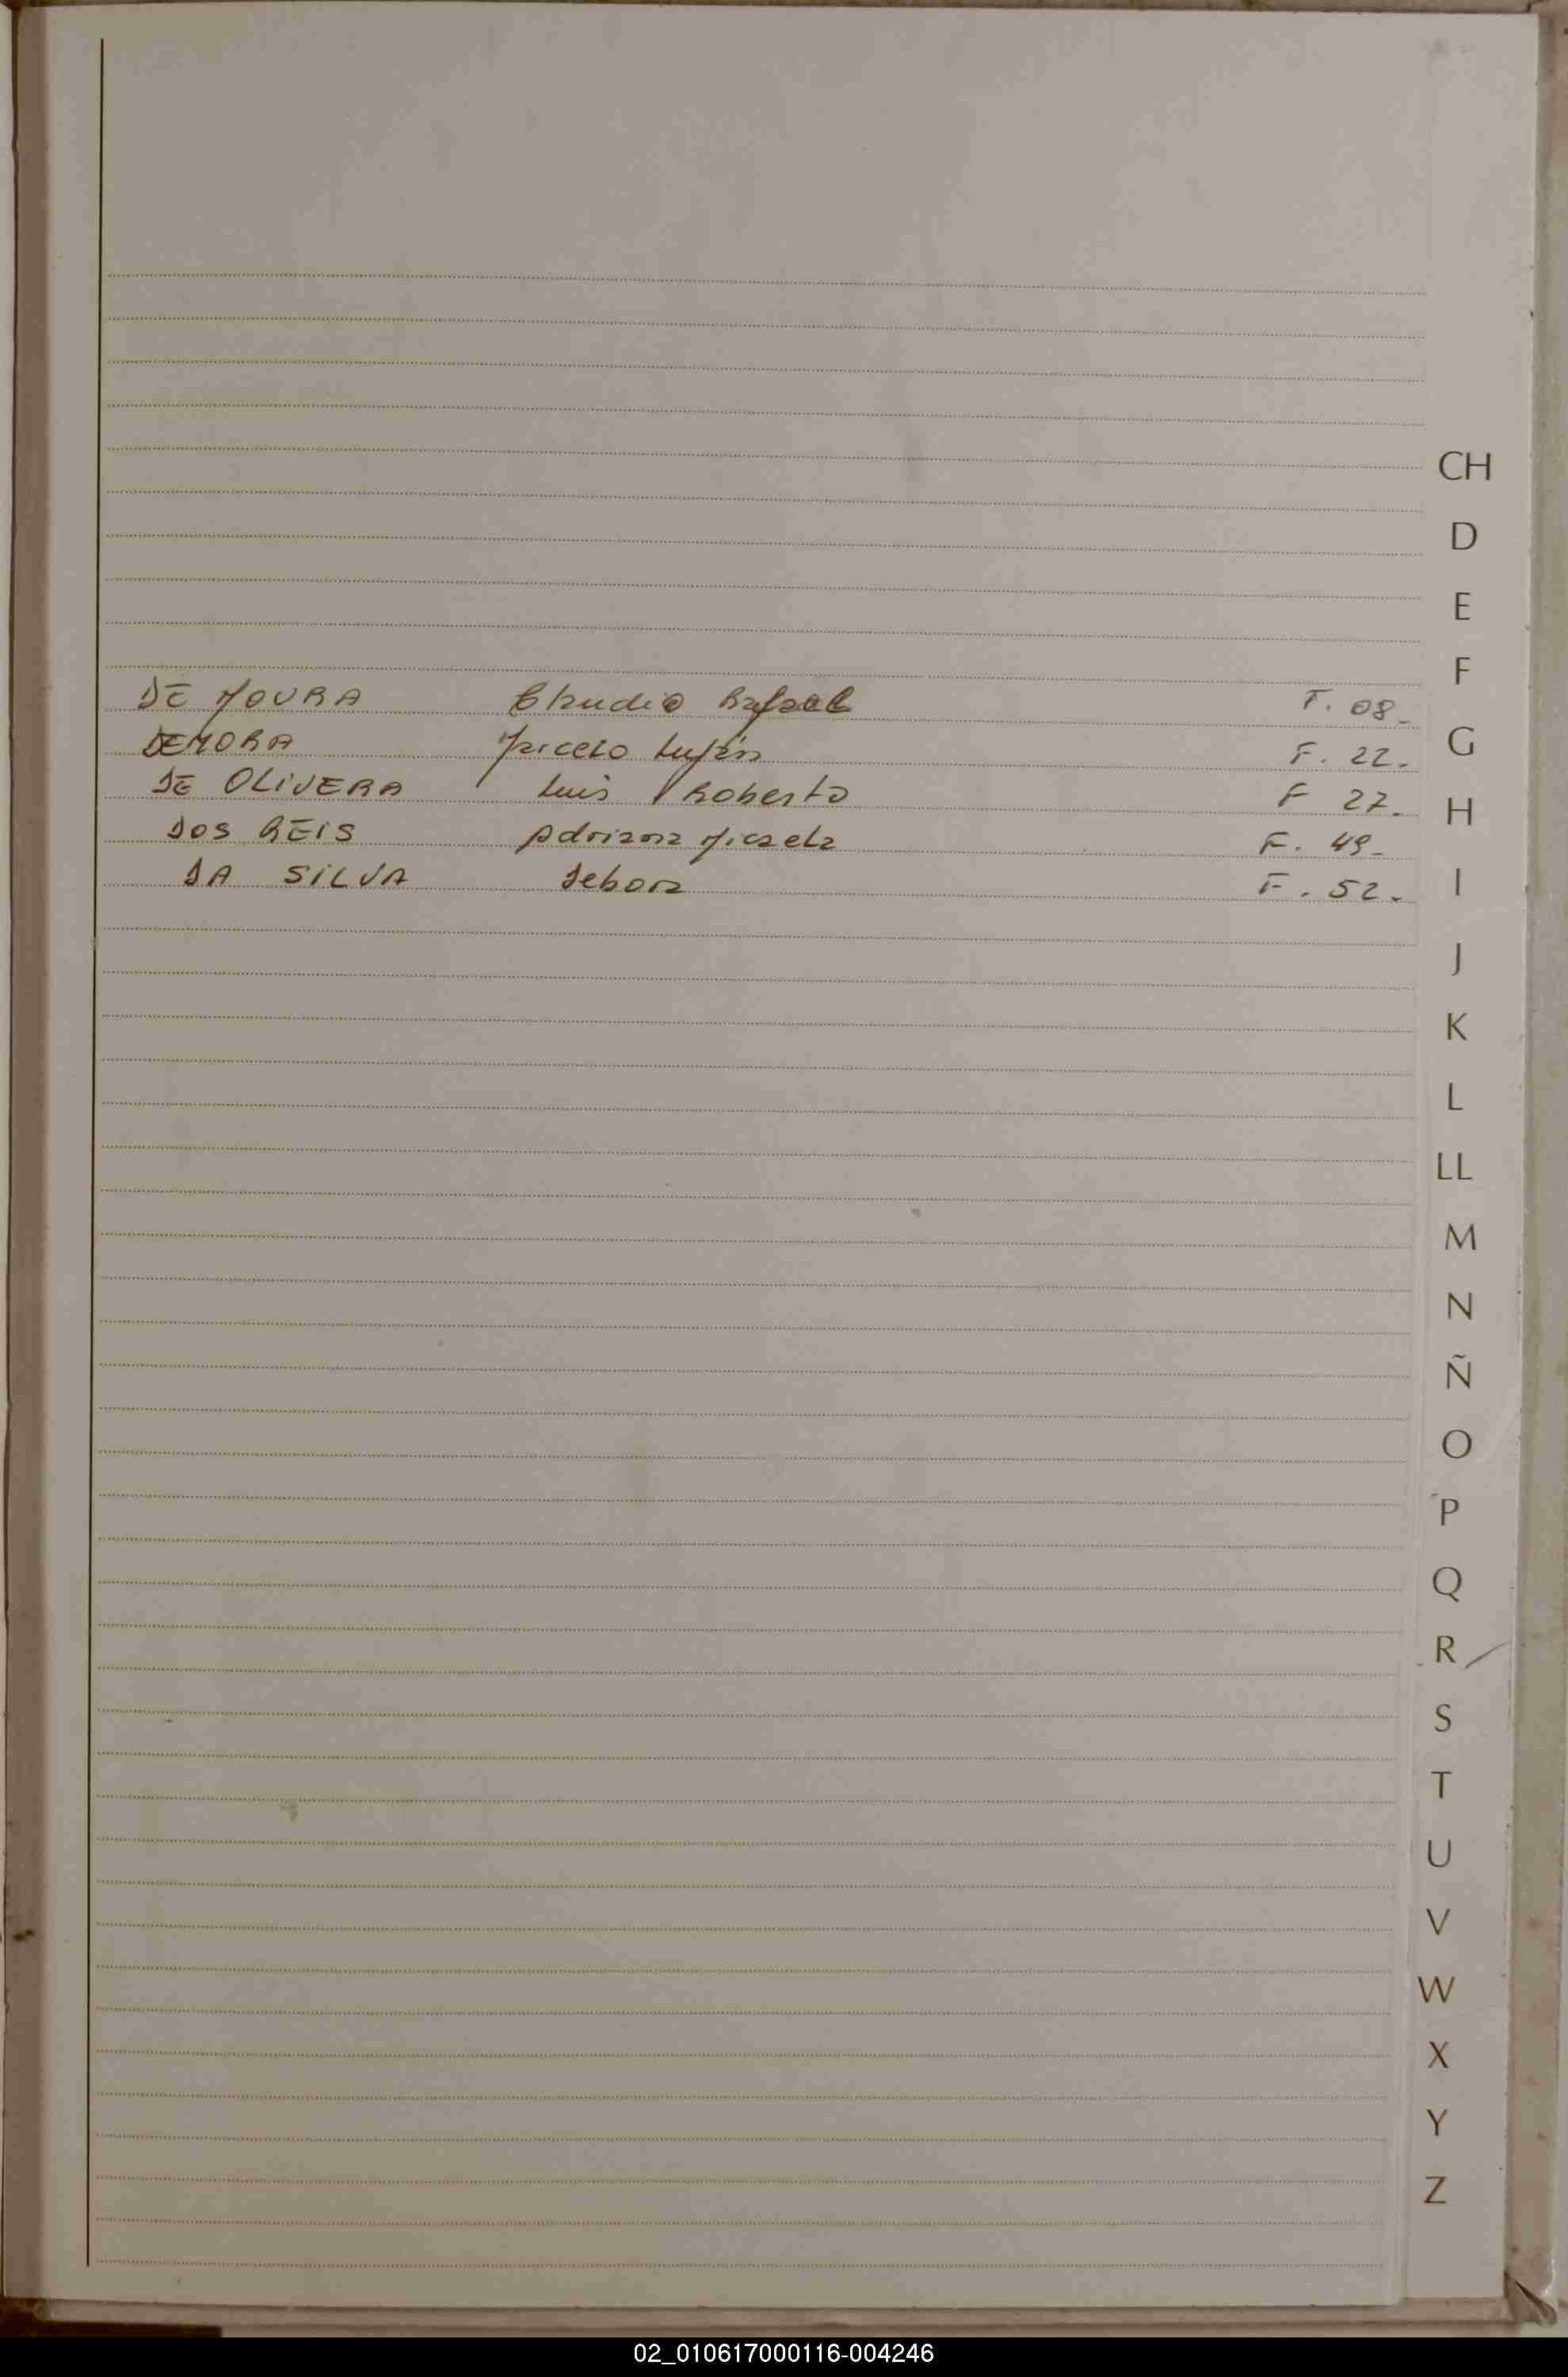 CH
D
E
F
DE MOURA Claudio Rafael F. 08-
G
DEMORA Marcelo Luján F. 22-
DE OLIVERA Luis Roberto F 27-
H
DOS REIS Adriana Micaela F. 49-
DA SILVA Debora F. 52-
I
J
K
L
LL
M
N
Ñ
O
P
Q
R
S
T
U
V
W
X
Y
Z
02_010617000116-004246